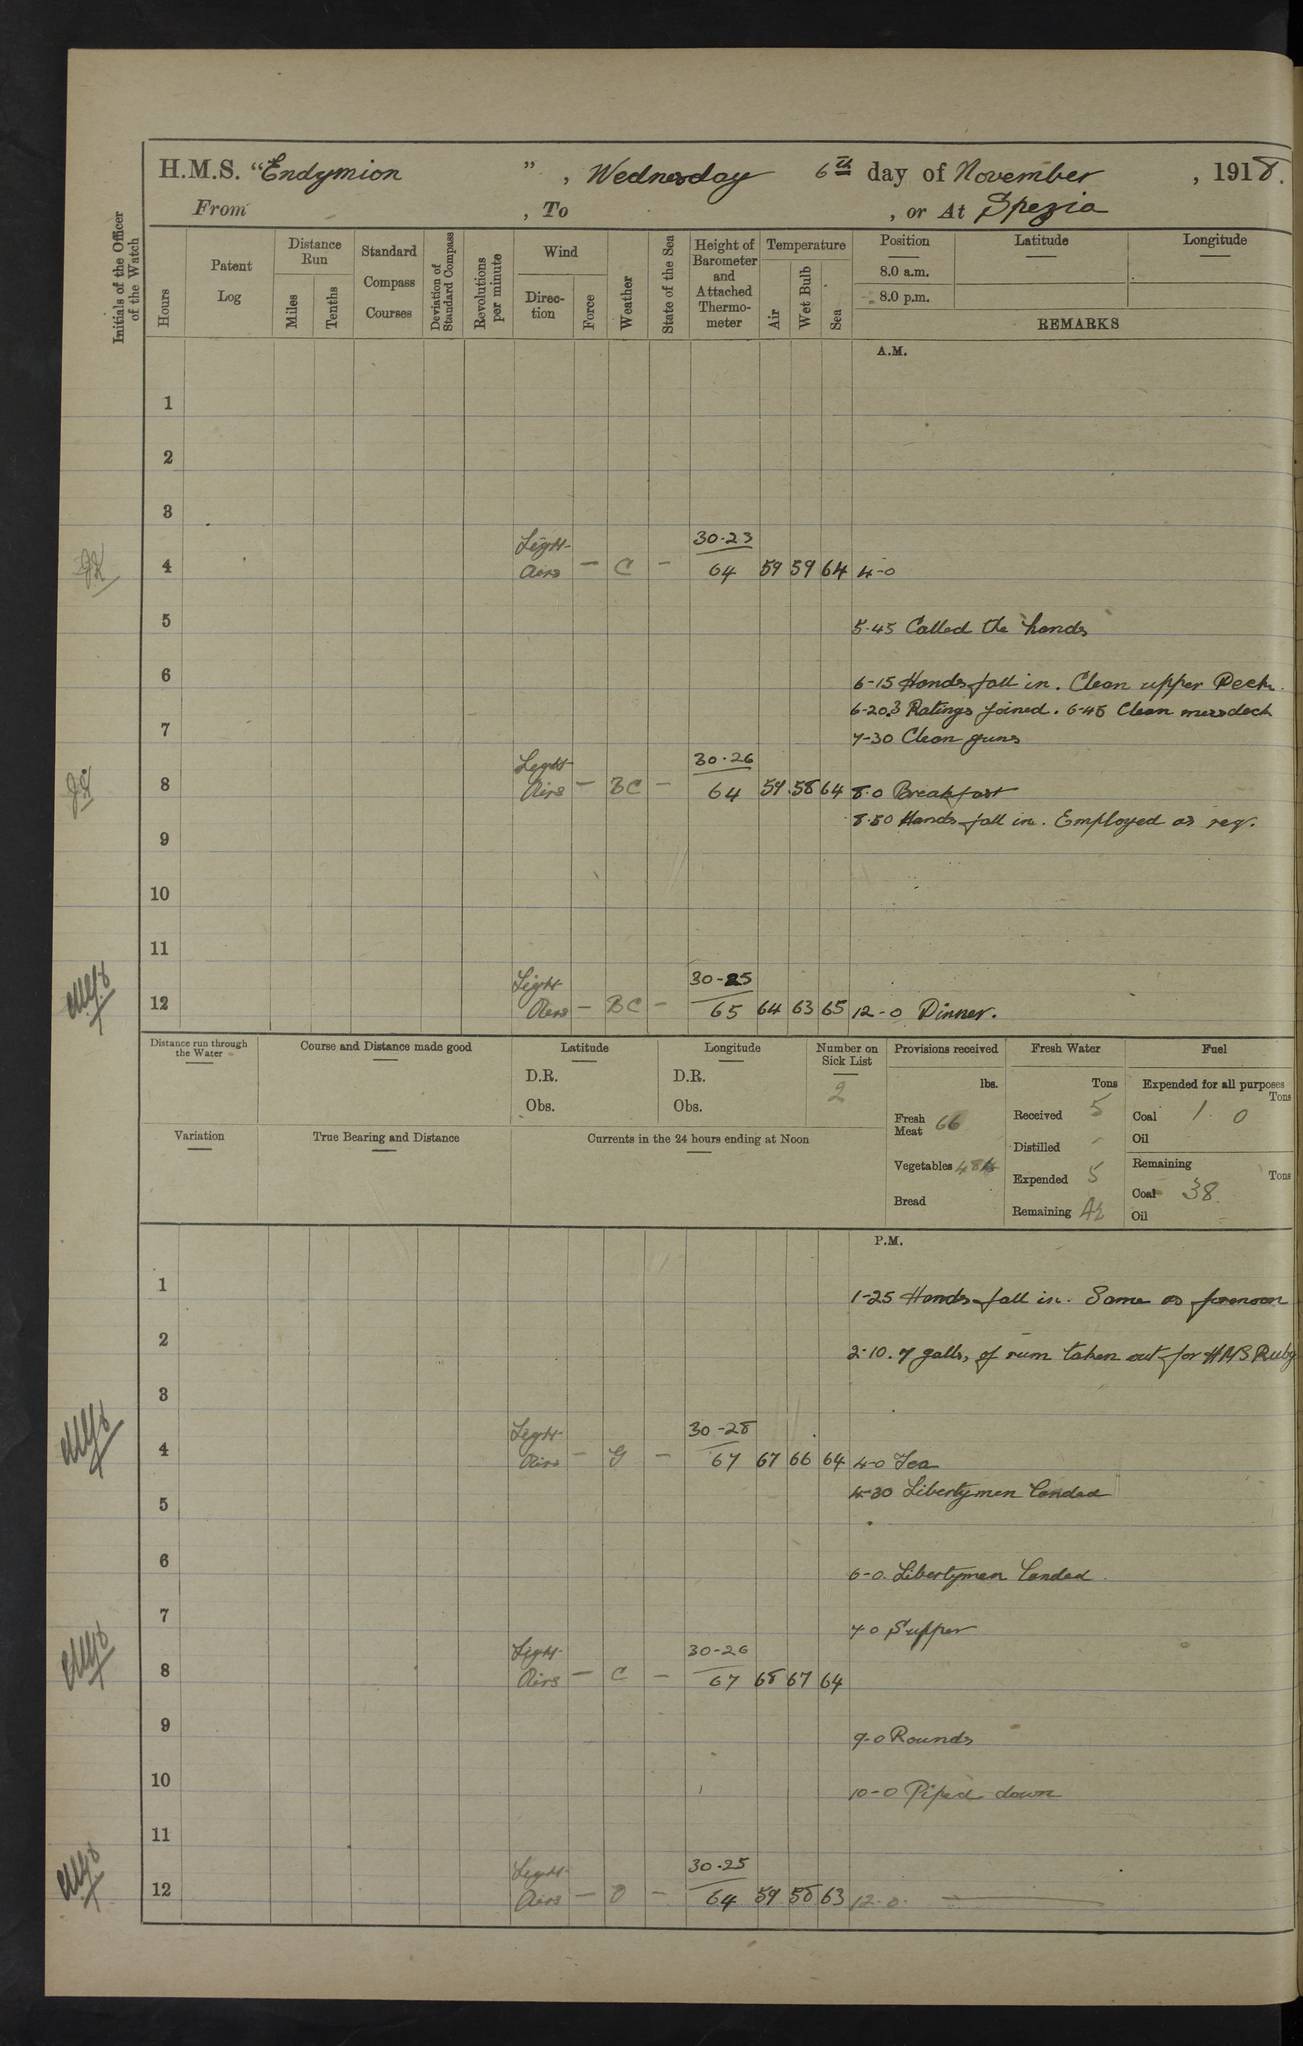 H.M.S. "Endymion ", Wednesday 6th day of November, 1918.
From , To , or At Spezia
Initials of the Officer of the Watch
Hours
Patent Log
Distance Run
Miles
Tenths
Standard Compass Courses
Deviation of Standard Compass
Revolutions per minute
Wind
Direc-tion
Force
Weather
State of the Sea
Height of Barometer and Attached Thermo-meter
Temperature
Air
Wet Bulb
Sea
Position Latitude Longitude
8.0 a.m.
8.0 p.m.
REMARKS
A.M.
1
2
3
Light 30.23
4 Airs - C - 64 59 59 64 4-0
5 5.45 Called the hands
6 6-15 Hands fall in. Clean upper Deck.
6-20.3 Ratings joined. 6-45 Clean messdeck
7 7-30 Clean guns
Light 30.26
8 Airs - BC - 64 59 58 64 8.0 Breakfast
8.50 Hands fall in. Employed as req.
9
10
11
Light 30-25
12 Airs - BC - 65 64 63 65 12-0 Dinner.
Distance run through the Water
Course and Distance made good
Latitude
D.R.
Obs.
Longitude
D.R.
Obs.
Number on Sick List
2
Provisions received
lbs.
Fresh Meat 66
Vegetables
Bread
Fresh Water
Tons
Received 5
Distilled -
Expended 5
Remaining
Fuel
Expended for all purposes
Tons
Coal 1. 0
Oil
Remaining
Tons
Coal 38
Oil
Variation
True Bearing and Distance
Currents in the 24 hours ending at Noon
P.M.
1 1-25 Hands fall in. Same as forenoon
2 2-10. 7 galls, of rum taken out for HMS Ruby
3
Light 30-28
4 Airs - G - 67 67 66 64 4-0 Tea
4-30 Libertymen landed
5
6 6-0. Libertymen landed.
7 7-0 Supper
Light 30-26
8 Airs - C - 67 68 67 64
9 9-0 Rounds
10 10-0 Piped down
11
Light 30.25
12 Airs - O - 64 59 58 63 12.0.